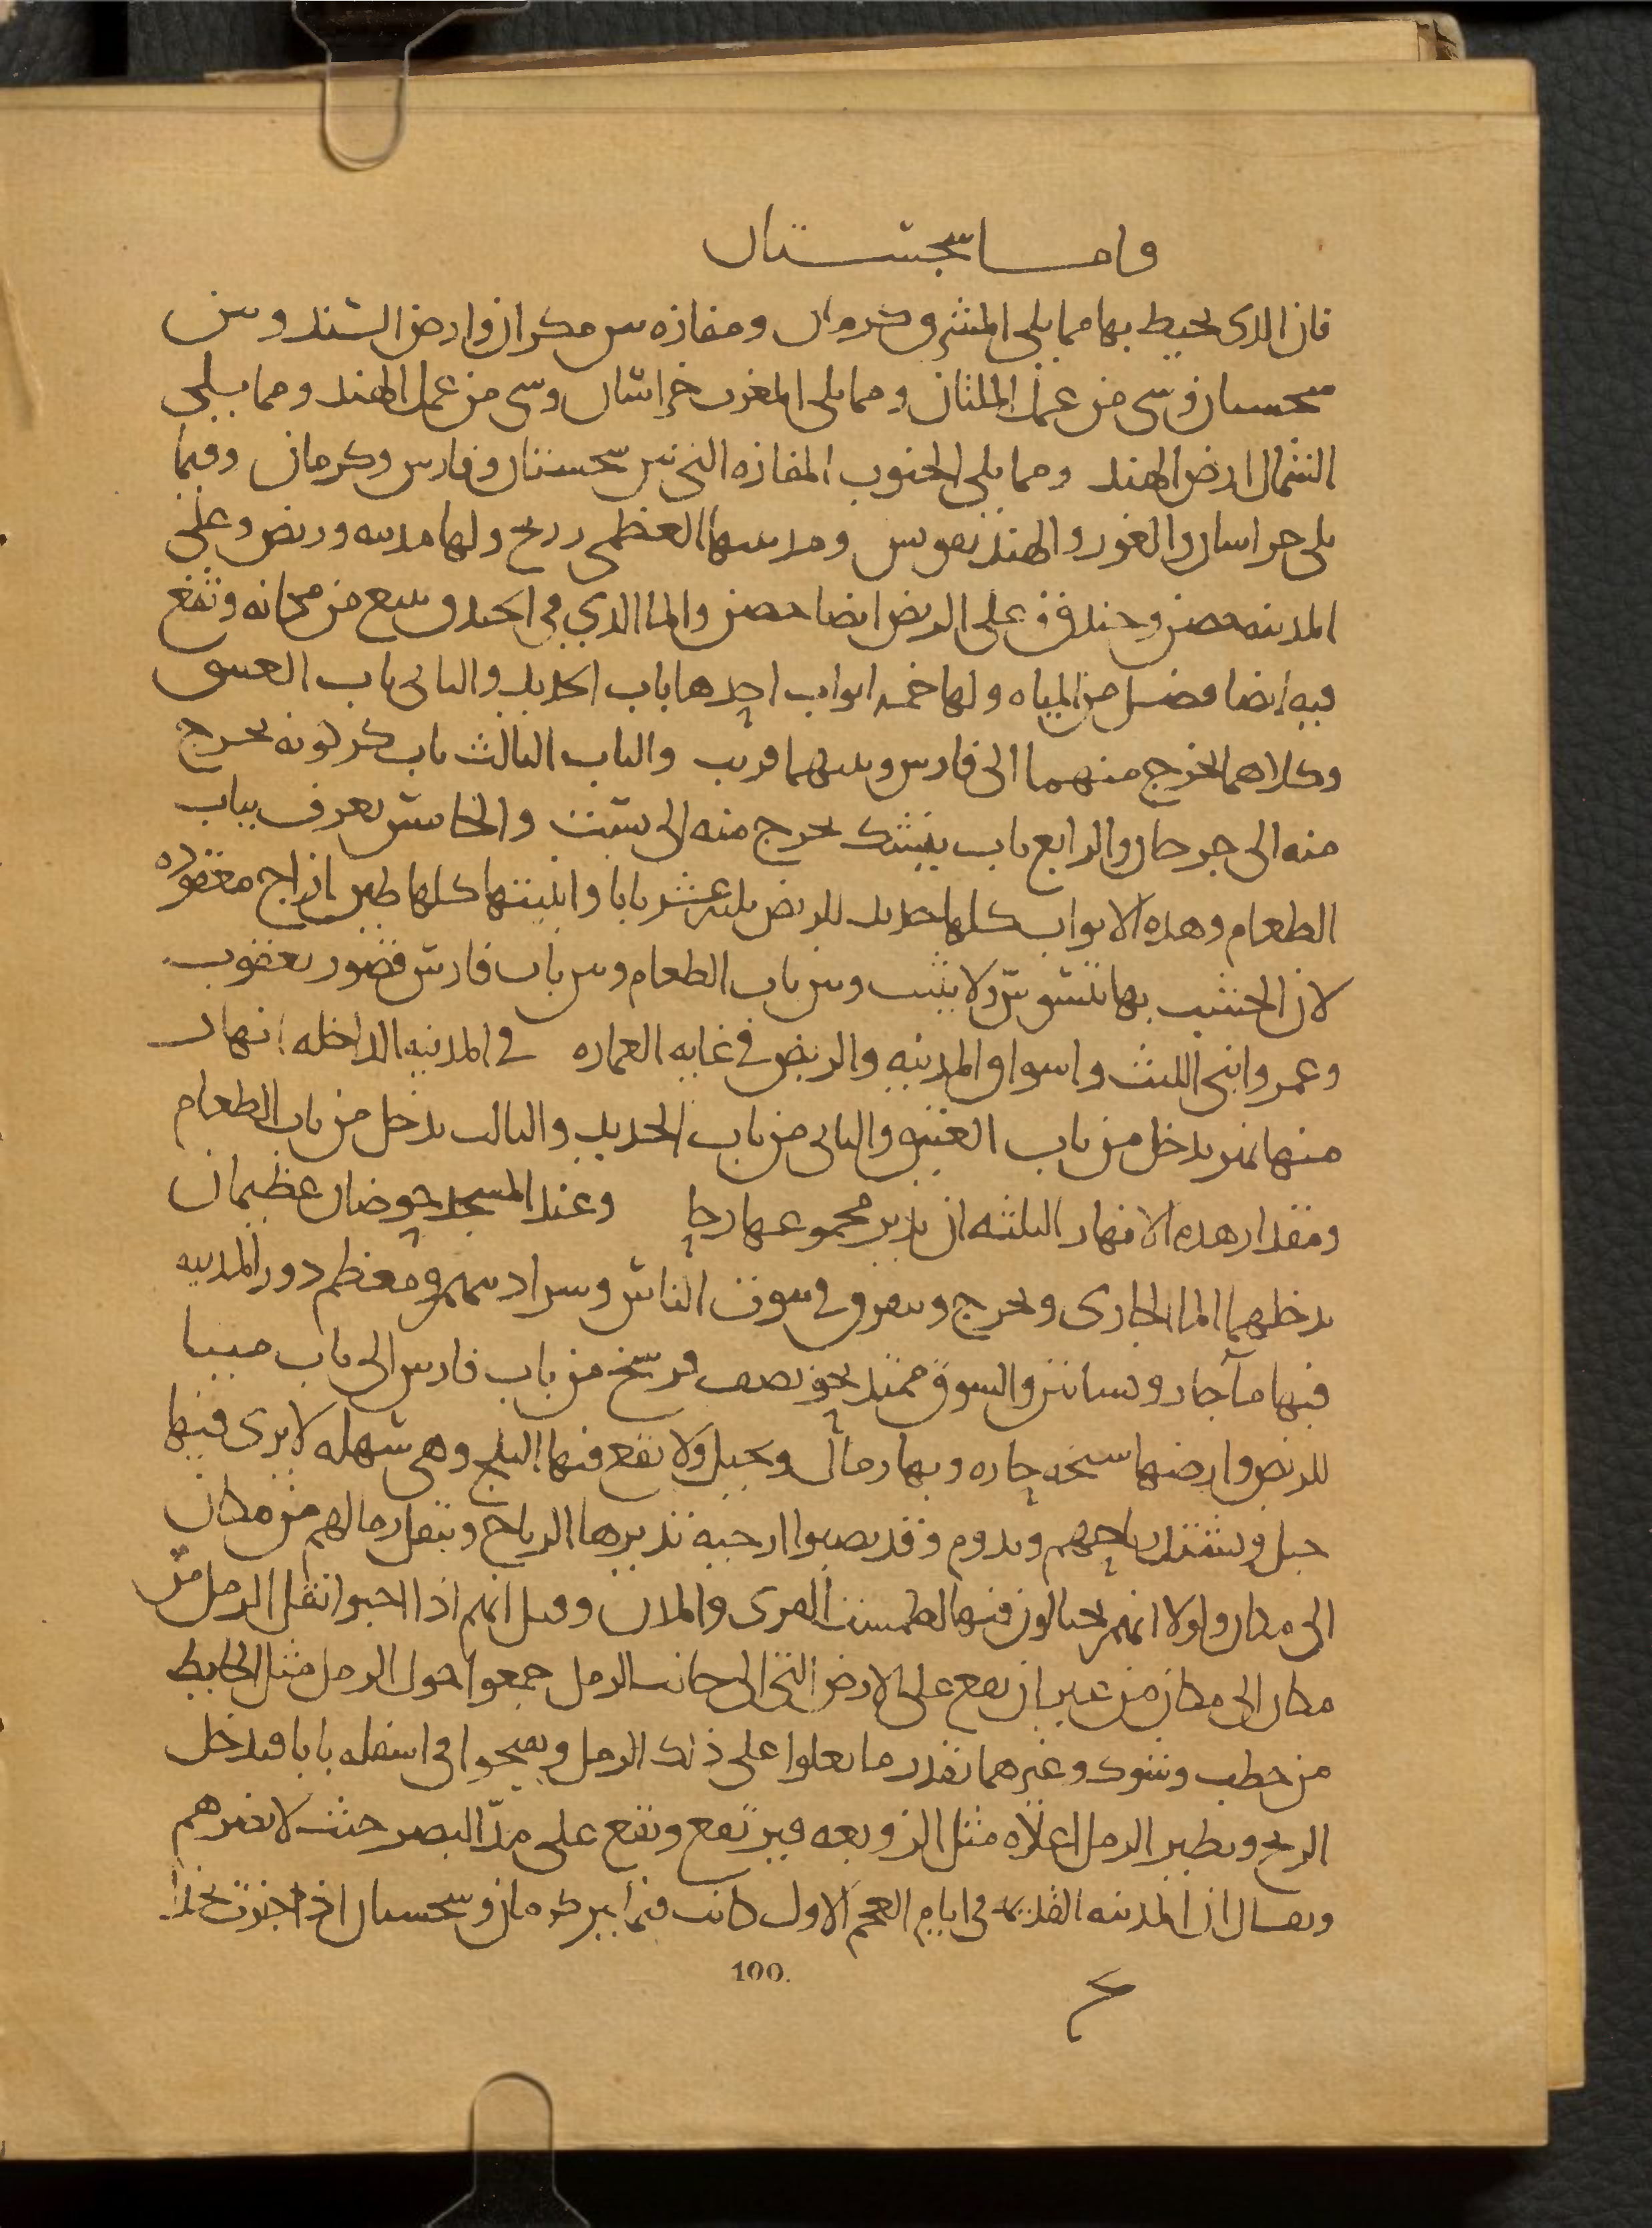 واما سجستان
فان الدى يحيط بها مما يلى المشرق وكرمان ومفازه بين مكران وارض السند وبين
سجستان وشى من عمل الملتان ومما يلى المغرب خراسان وشى من عمل الهند ومما يلى
الشمال ارض الهند ومما يلى الجنوب المفازه التى بين سجستان وفارس وكرمان وفيما
يلى خراسان والغور والهند تقويس ومدينتها العظمى زرنج ولها مدينه وربض وعلى
المدينه حصن وخندق وعلى الربض ايضا حصن والما الدي في الخندق ينبع من مكانه وتقع
فيه ايضا فضل من المياه ولها خمسه ابواب احدها باب الحديد والثانى باب العتيق
وكلاهما يخرج منهما الى فارس وبينهما قريب والباب الثالث باب كركويه يخرج
منه الى خراسان والرابع باب نيشك يخرج منه الى بست والخامس يعرف بباب
الطعام وهده الابواب كلها حديد للربض ثلثه عشر بابا وابنيتها كلها طين ازاج معقوده
لان الخشب بها يتسوس ولا يثبت وبين باب الطعام وبين باب فارس قصور يعقوب
وعمرو ابنى الليث واسواق المدينه والربض في غايه العماره في المدينه الداخله انهار
منها نهر يدخل من باب العتيق والثانى من باب الحديد والثالث يدخل من باب الطعام
ومقدار هده الانهار الثلثه ان يدير مجموعها رحا وعند المسجد حوضان عظيمان
يدخلهما الما الجارى ويخرج ويتفرق في بيوت الناس وسراديبهم ومعظم دور المدينه
فيها ماء جار وبساتين والسوق ممتد نحو نصف فرسخ من باب فارس الى باب مينا
للربض وارضها سبخه حاره وبها رمال ونخيل ولا تقع فيها الثلج وهى سهله لا يرى فيها
جبل وتشتد رياحهم وتدوم وقد نصبوا ارحيه تديرها الرياح وتنقل رمالهم من مكان
الى مكان ولولا انهم يحتالون فيها لطمست القرى والمدن وقيل انهم اذا احبوا نقل الرمل من
مكان الى مكان من غير ان يقع على الارض التى الى جانب الرمل جمعوا حول الرمل مثل الحايط
من حطب وشوك وغيرهما بقدر ما يعلوا على ذلك الرمل ويفتحوا فى اسفله بابا فيدخل
الريح ويطير الرمل اعلاه مثل الزوبعه فيرتفع وتقع على مد البصر حيث لا يضرهم
ويقال ان المدينه القديمه فى ايام العجم الاول كانت فيما بين كرمان وسجستان اذا اجزت بحذا
100.